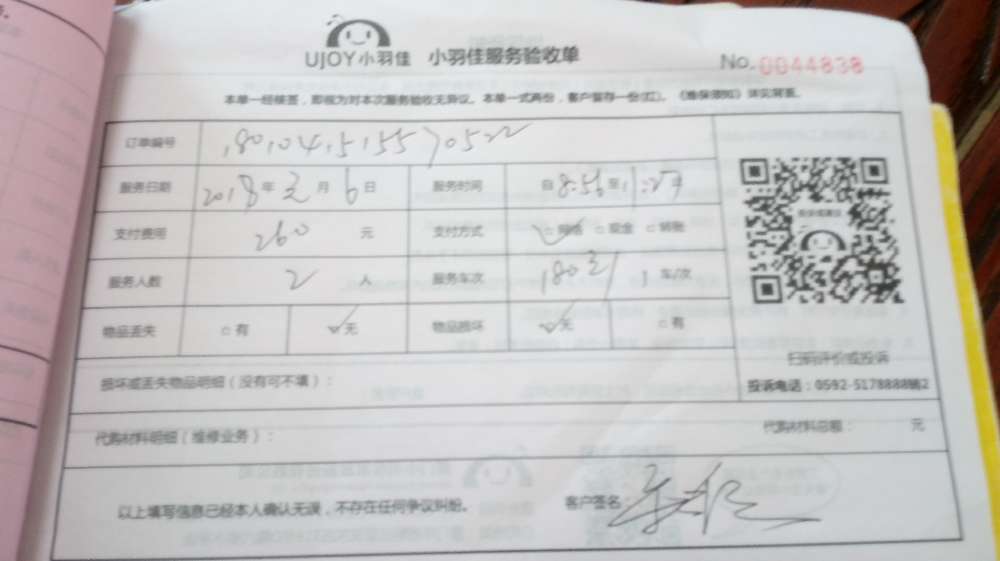 UJOY小羽佳 小羽佳服务验收单
No. 0044838
本单一经接签，即视为对本次服务验收无异议。本单一式两份，客户留存一份(红)。《维保须知》详见背面。
订单编号
服务日期 2018年3月6日 服务时间 自8:56至11:27
支付费用 260元 支付方式 ☑网络 □现金 □转账
服务人数 2人 服务车次 车/次
物品丢失 □有 ☑无 物品损坏 ☑无 □有
扫码评价或投诉
损坏或丢失物品明细（没有可不填）：
投诉电话：0592-5178888转2
代购材料明细（维修业务）： 代购材料总额： 元
以上填写信息已经本人确认无误，不存在任何争议纠纷。 客户签名：